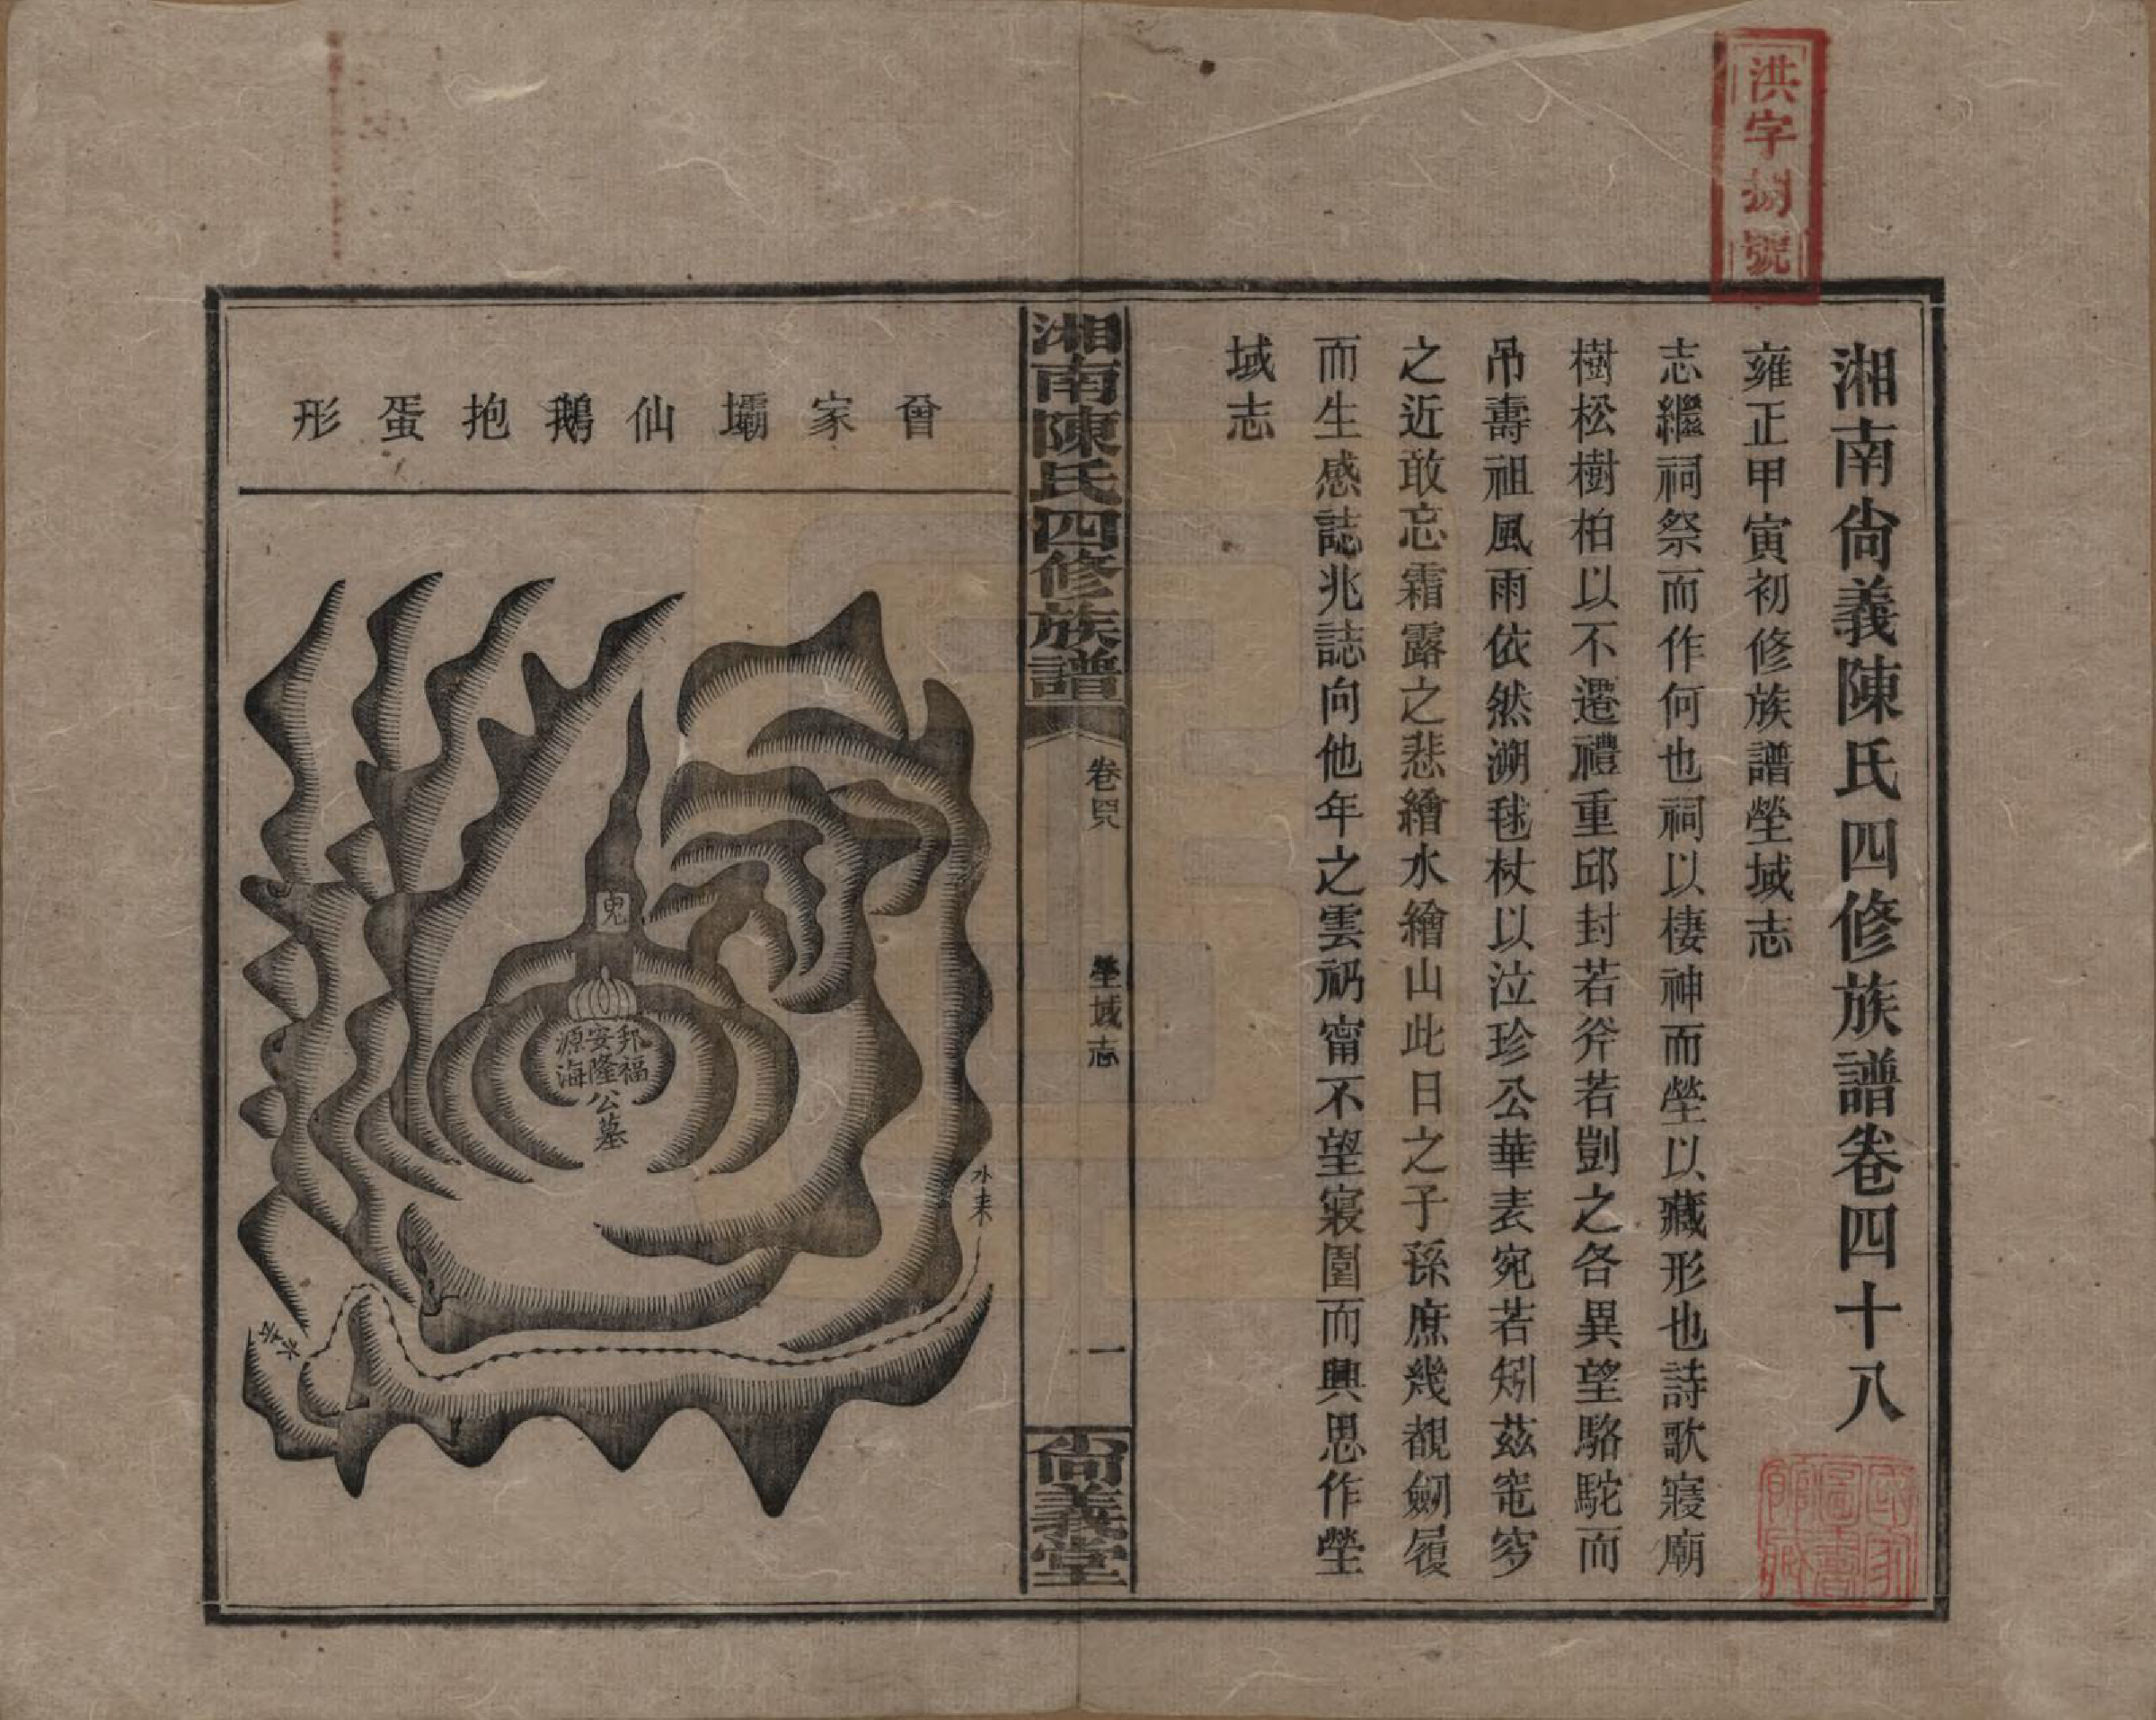 洪字捌號
湘南尙義陳氏四修族譜卷四十八
雍正甲寅初修族譜塋域志
志繼祠祭而作何也祠以棲神而塋以藏形也詩歌寢廟
樹松樹柏以不遷禮重邱封若斧若剴之各異望駱駝而
吊壽祖風雨依然溯毬杖以泣珍公華表宛若矧茲窀穸
之近敢忘霜露之悲繪水繪山此日之子孫庶幾覩劒履
而生感誌兆誌向他年之雲礽甯不望寢園而興思作塋
域志
湘南陳氏四修族譜
卷四八
塋域志
一
尙義堂
曾家壩仙鵝抱蛋形
鬼
邦福
安隆
源海
公墓
水来
水去
國家圖書館藏